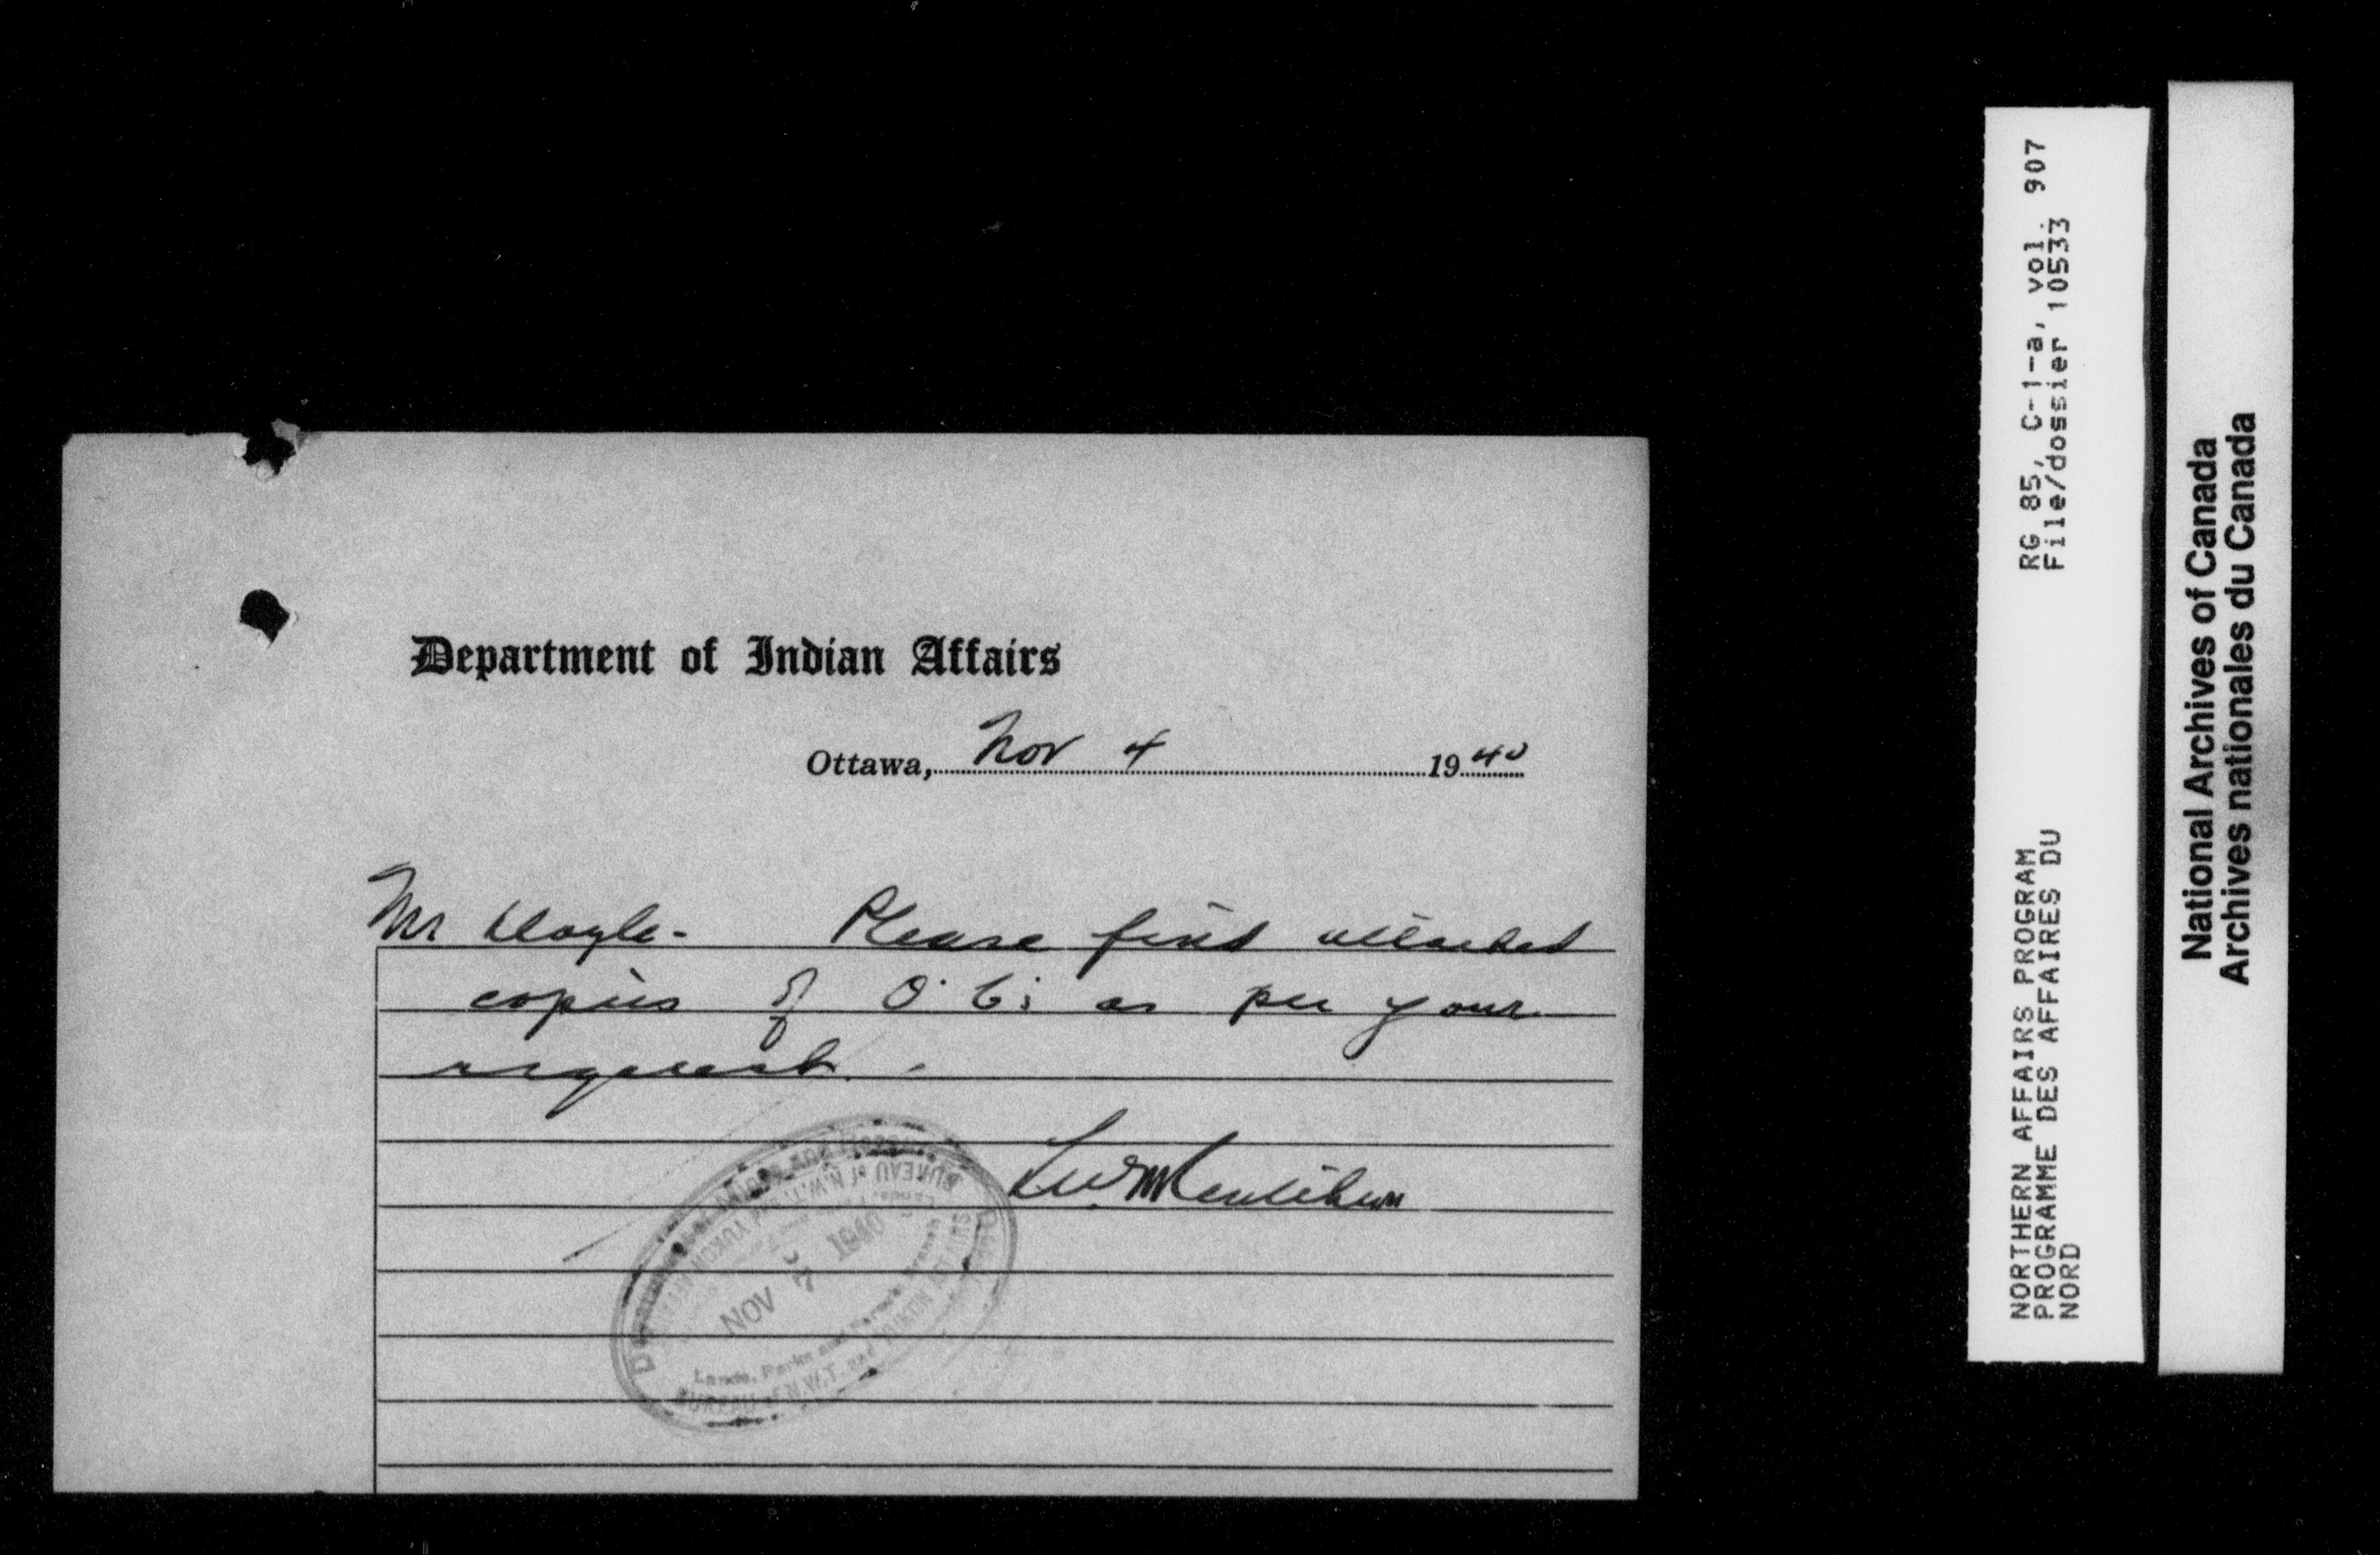 Department of Indian Affairs
Ottawa, Nov 4 1940
Mr Doyle - Please find attached
copies of O.C. as per your
request.
NOV 7 1940
Lands, Parks and Forests Branch
BUREAU of N.W.T. and YUKON AFFAIRS
RG 85, C-1-a, vol. 907
File/dossier 10533
NORTHERN AFFAIRS PROGRAM
PROGRAMME DES AFFAIRES DU
NORD
National Archives of Canada
Archives nationales du Canada